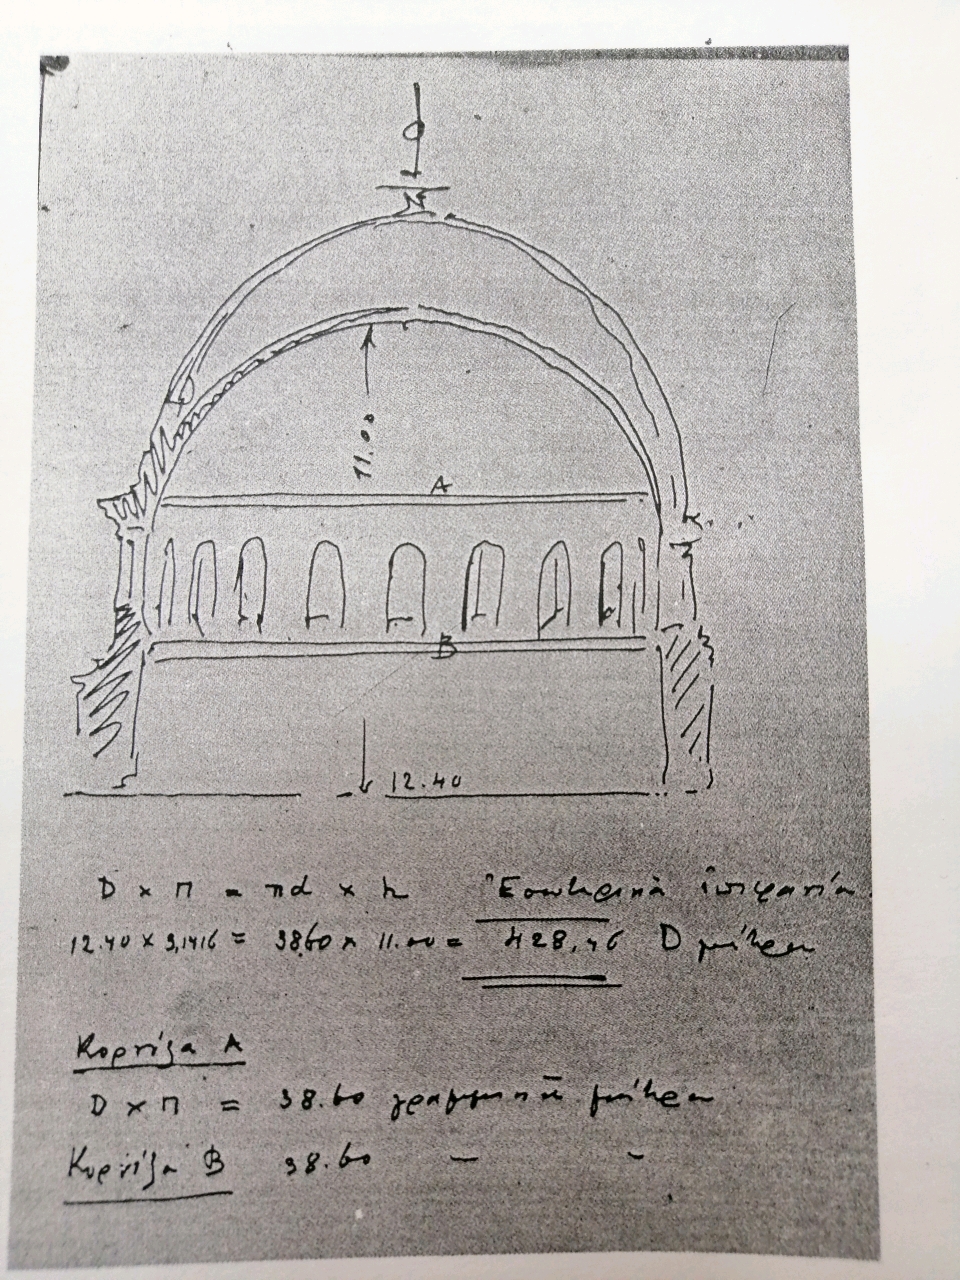 11.00
A
B
12.40
D × Π = πd × h Ἐσωτερικὰ ἐπιφανία
12.40 × 3,1416 = 38,60 × 11.00 = 428,46 D μέτρα
Κορνίζα A
D × Π = 38.60 γραμμικὰ μέτρα
Κορνίζα B 38.60 — –